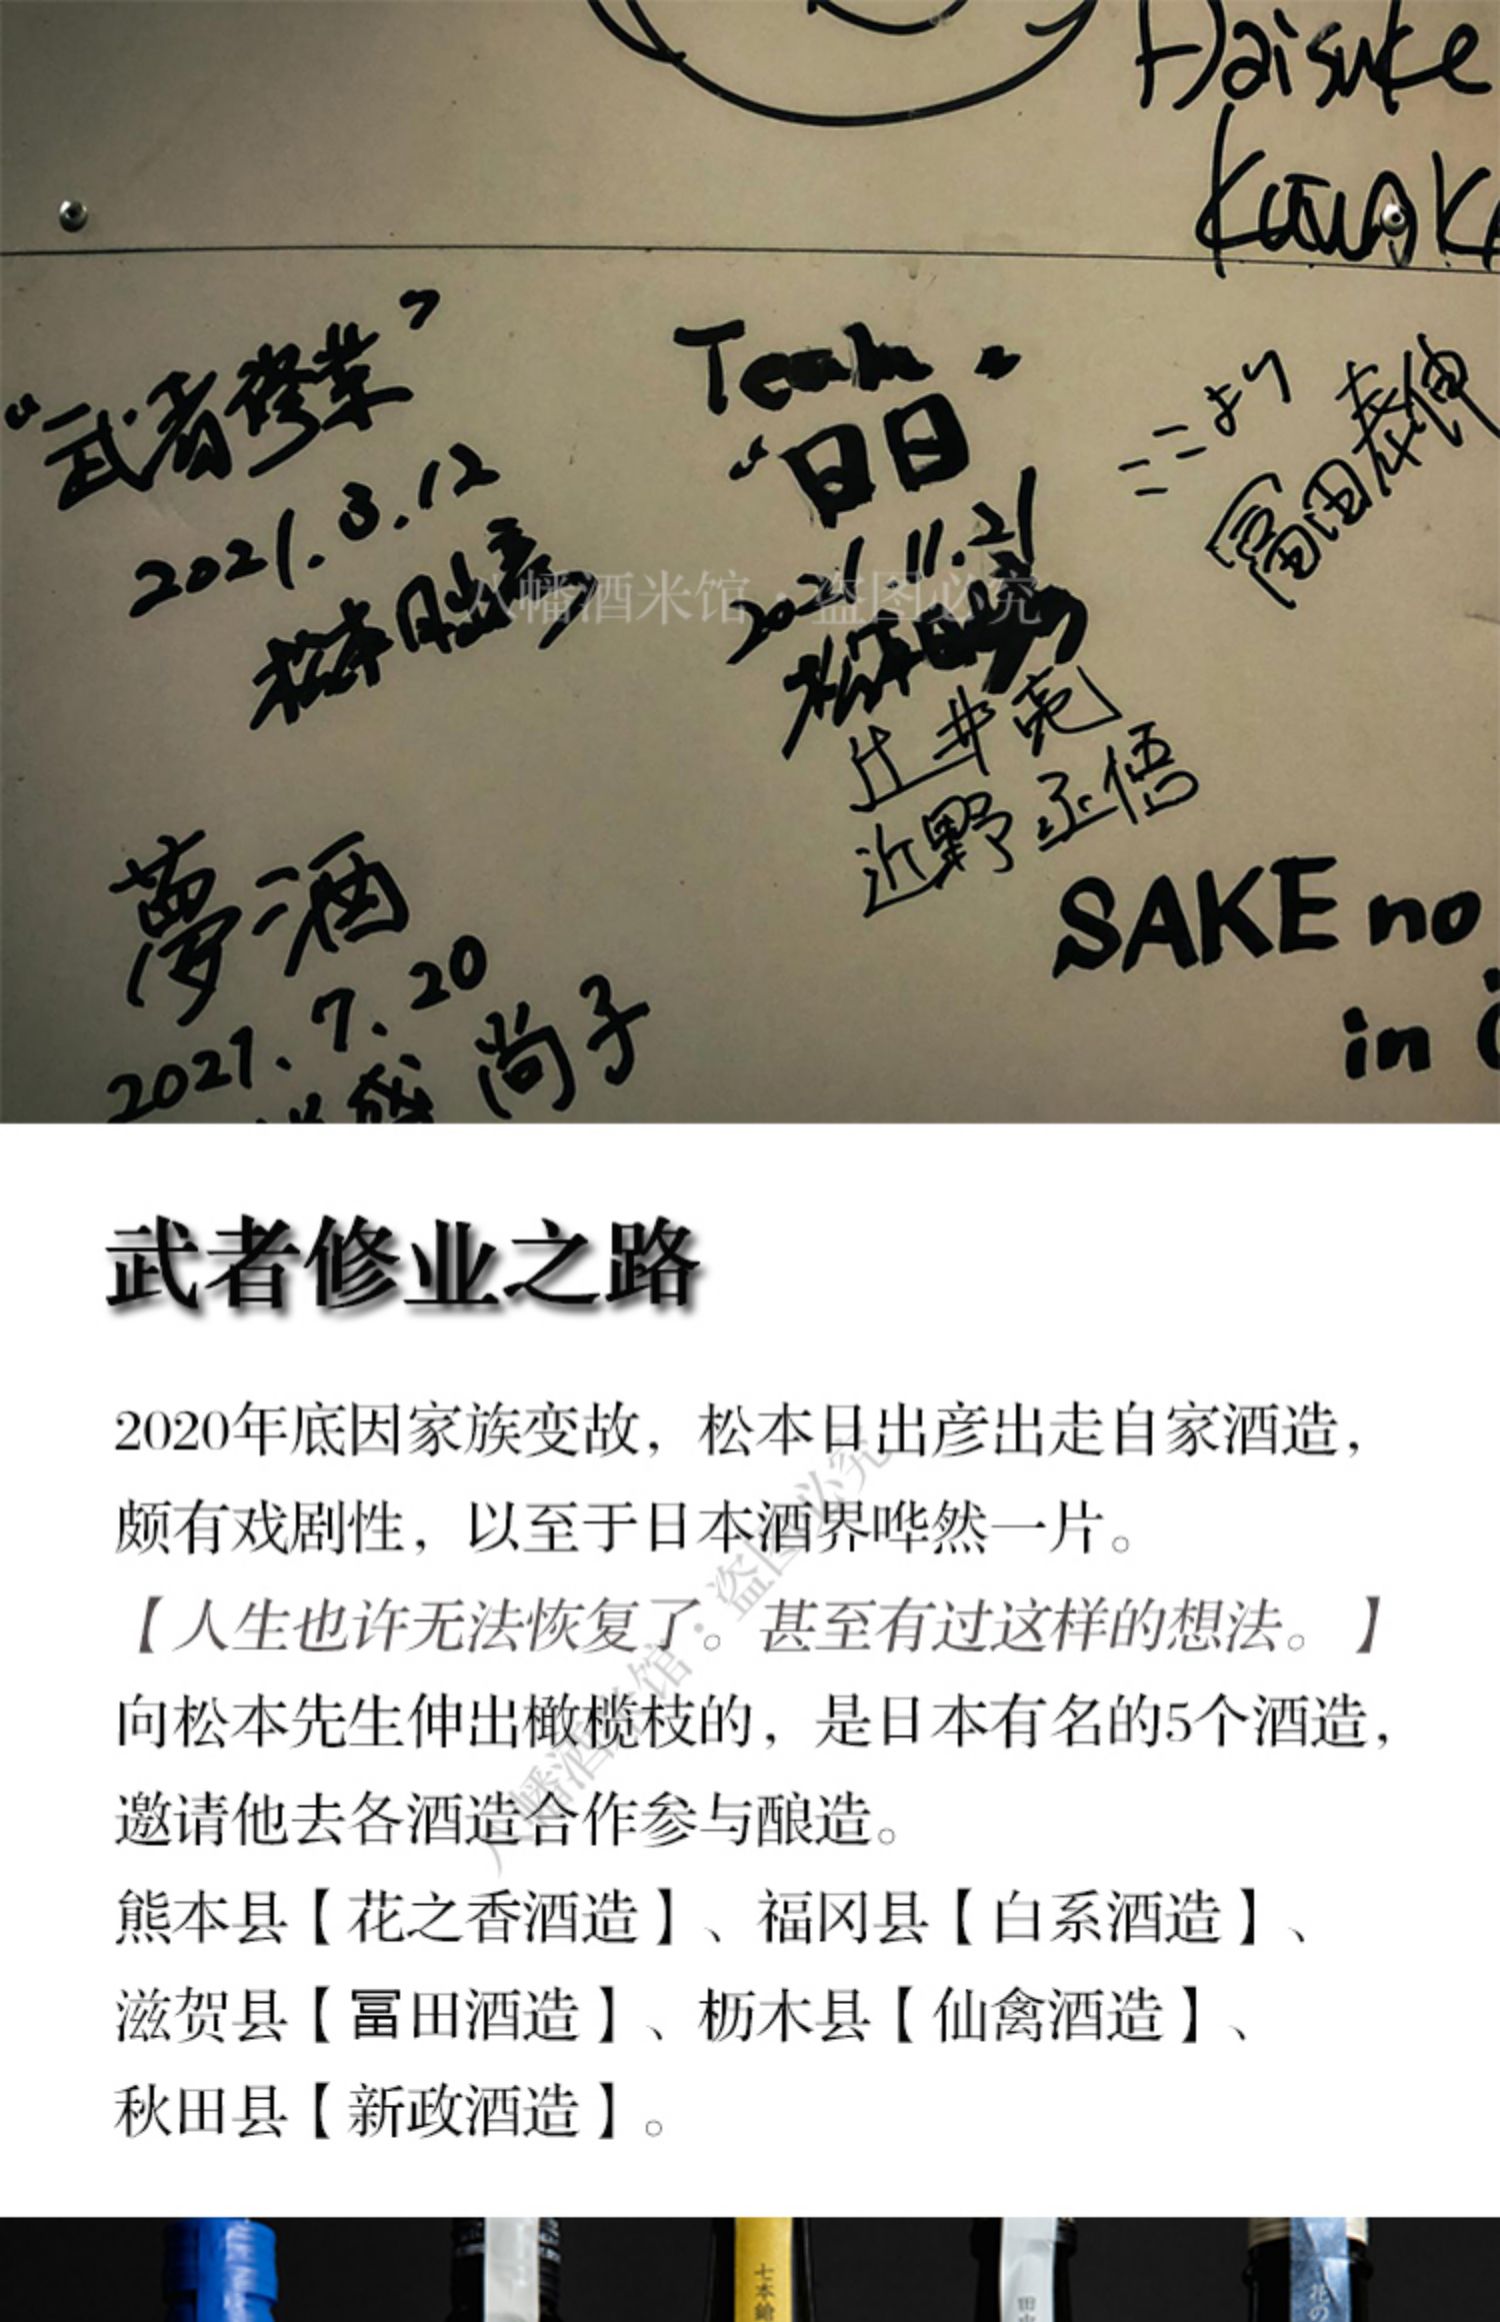 Daisuke
"武者修業"
2021.3.12
松本日出彦
Team
"日日"
2021.11.21
松本日出彦
辻井亮
近野丞悟
ここより
冨田泰伸
夢酒
2021.7.20
尚子
SAKE no
in
八幡酒米馆·盗图必究
武者修业之路
2020年底因家族变故，松本日出彦出走自家酒造，
颇有戏剧性，以至于日本酒界哗然一片。
【人生也许无法恢复了。甚至有过这样的想法。】
向松本先生伸出橄榄枝的，是日本有名的5个酒造，
邀请他去各酒造合作参与酿造。
熊本县【花之香酒造】、福冈县【白系酒造】、
滋贺县【冨田酒造】、枥木县【仙禽酒造】、
秋田县【新政酒造】。
八幡酒米馆·盗图必究
七本鎗
田中
花の